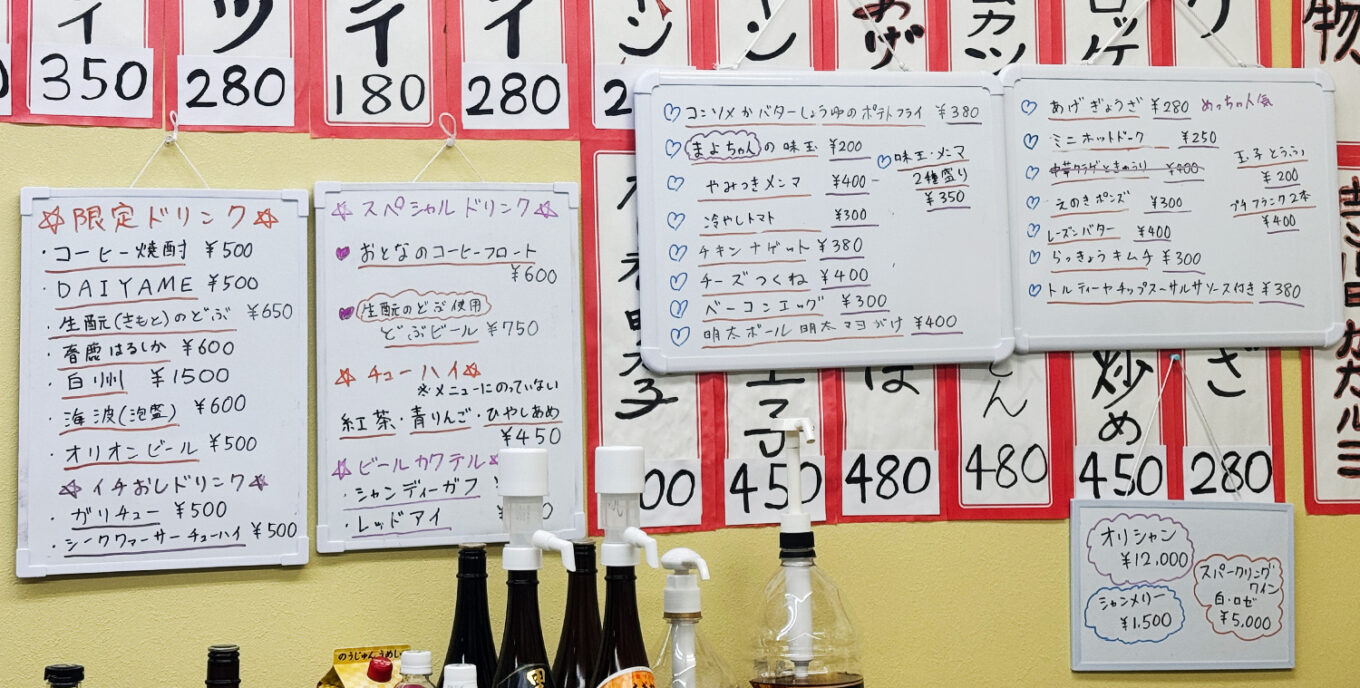 350
280
180
280
☆限定ドリンク☆
・コーヒー焼酎 ¥500
・DAIYAME ¥500
・生酛(きもと)のどぶ ¥650
・春鹿はるしか ¥600
・白州 ¥1500
・海波(泡盛) ¥600
・オリオンビール ¥500
☆イチおしドリンク☆
・ガリチュー ¥500
・シークヮーサーチューハイ ¥500
☆スペシャルドリンク☆
♥おとなのコーヒーフロート
¥600
♥生酛のどぶ使用
どぶビール ¥750
☆チューハイ☆
※メニューにのっていない
紅茶・青りんご・ひやしあめ
¥450
☆ビールカクテル☆
・シャンディーガフ
・レッドアイ
♡コンソメかバターしょうゆのポテトフライ ¥380
♡まよちゃんの味玉 ¥200
♡やみつきメンマ ¥400-
♡冷やしトマト ¥300
♡チキンナゲット ¥380
♡チーズつくね ¥400
♡ベーコンエッグ ¥300
♡明太ボール 明太マヨがけ ¥400
♡味玉・メンマ
2種盛り
¥350
♡あげぎょうざ ¥280 めっちゃ人気
♡ミニホットドック ¥250
♡中華クラゲときゅうり ¥400
♡えのきポンズ ¥300
♡レーズンバター ¥400
♡らっきょうキムチ ¥300
♡トルティーヤチップスーサルサソース付き ¥380
玉子とうふ
¥200
プチフランク2本
¥400
450
480
480
炒め
450
ざ
280
オリシャン
¥12,000
シャンメリー
¥1,500
スパークリング
ワイン
白・ロゼ
¥5,000
のうじゅんうめし